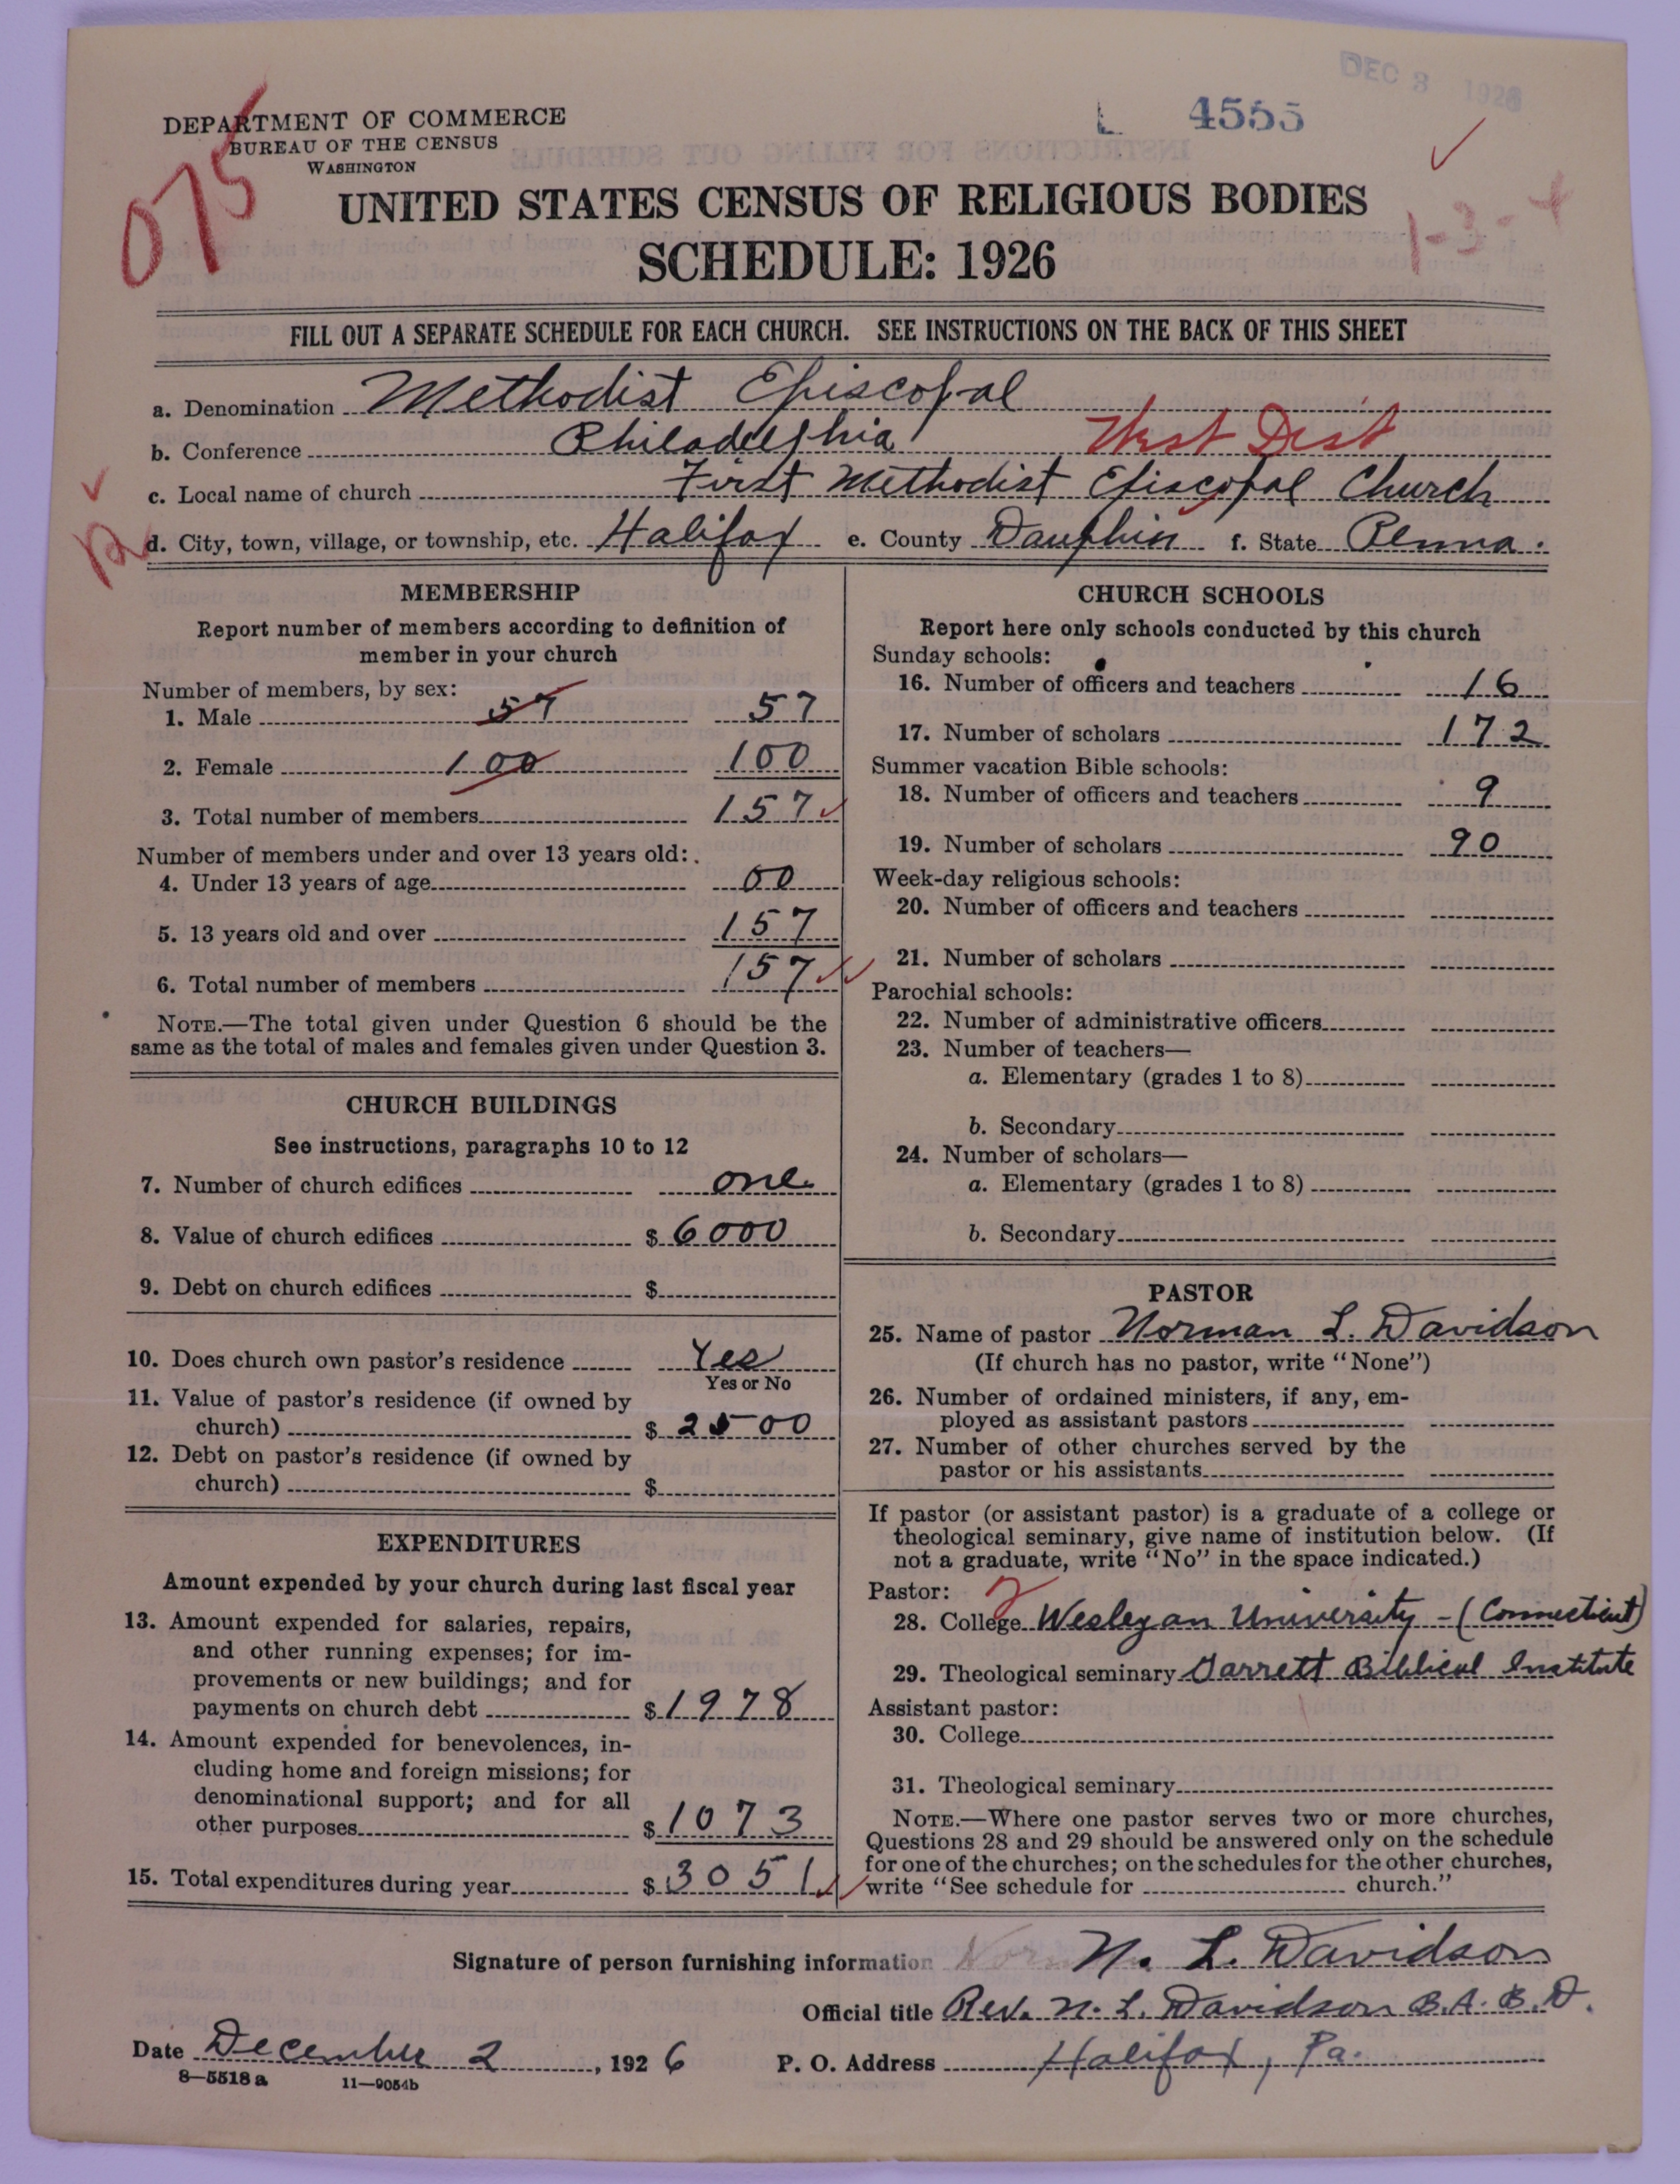 DEC 3 1926
L 4555
DEPARTMENT OF COMMERCE
BUREAU OF THE CENSUS
WASHINGTON
075
UNITED STATES CENSUS OF RELIGIOUS BODIES
1-3-4
SCHEDULE: 1926
FILL OUT A SEPARATE SCHEDULE FOR EACH CHURCH. SEE INSTRUCTIONS ON THE BACK OF THIS SHEET
a. Denomination Methodist Episcopal
b. Conference Philadelphia West Dist
c. Local name of church First Methodist Episcopal Church
R
d. City, town, village, or township, etc. Halifax e. County Dauphin f. State Penna.
MEMBERSHIP
Report number of members according to definition of
member in your church
Number of members, by sex:
1. Male 57 57
2. Female 100 100
3. Total number of members 157
Number of members under and over 13 years old:
4. Under 13 years of age 00
5. 13 years old and over 157
6. Total number of members 157
NOTE.—The total given under Question 6 should be the
same as the total of males and females given under Question 3.
CHURCH BUILDINGS
See instructions, paragraphs 10 to 12
7. Number of church edifices one
8. Value of church edifices $ 6000
9. Debt on church edifices $
10. Does church own pastor's residence Yes
Yes or No
11. Value of pastor's residence (if owned by
church) $ 2500
12. Debt on pastor's residence (if owned by
church) $
EXPENDITURES
Amount expended by your church during last fiscal year
13. Amount expended for salaries, repairs,
and other running expenses; for im-
provements or new buildings; and for
payments on church debt $ 1978
14. Amount expended for benevolences, in-
cluding home and foreign missions; for
denominational support; and for all
other purposes $ 1073
15. Total expenditures during year $ 3051
CHURCH SCHOOLS
Report here only schools conducted by this church
Sunday schools:
16. Number of officers and teachers 16
17. Number of scholars 172
Summer vacation Bible schools:
18. Number of officers and teachers 9
19. Number of scholars 90
Week-day religious schools:
20. Number of officers and teachers
21. Number of scholars
Parochial schools:
22. Number of administrative officers
23. Number of teachers—
a. Elementary (grades 1 to 8)
b. Secondary
24. Number of scholars—
a. Elementary (grades 1 to 8)
b. Secondary
PASTOR
25. Name of pastor Norman L. Davidson
(If church has no pastor, write "None")
26. Number of ordained ministers, if any, em-
ployed as assistant pastors
27. Number of other churches served by the
pastor or his assistants
If pastor (or assistant pastor) is a graduate of a college or
theological seminary, give name of institution below. (If
not a graduate, write "No" in the space indicated.)
Pastor: 2
28. College Wesleyan University - (Connecticut)
29. Theological seminary Garrett Biblical Institute
Assistant pastor:
30. College
31. Theological seminary
NOTE.—Where one pastor serves two or more churches,
Questions 28 and 29 should be answered only on the schedule
for one of the churches; on the schedules for the other churches,
write "See schedule for church."
Signature of person furnishing information N. L. Davidson
Official title Rev. N. L. Davidson B.A. B.D.
Date December 2, 1926 P. O. Address Halifax, Pa.
8—5518 a 11—9054b